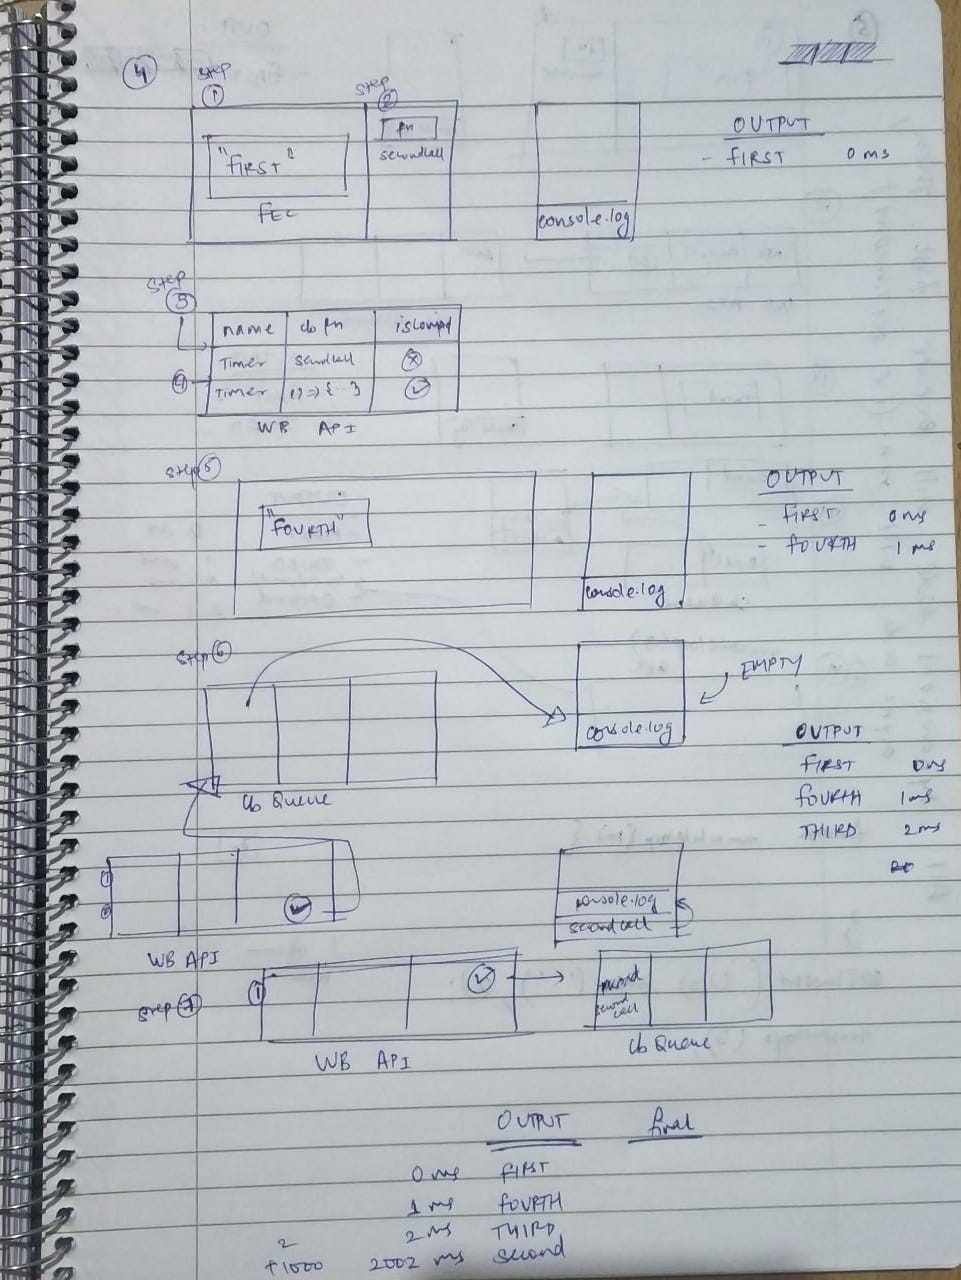 4
Step
1
Step
2
"FIRST"
FEC
fn
secondcall
console.log
OUTPUT
- FIRST 0 ms
Step
3
name cb fn iscomped
Timer secndcall ⊗
4 Timer () => {...} ✓
WB API
Step 5
"FOURTH"
console.log
OUTPUT
- FIRST 0 ms
- FOURTH 1 ms
Step 6
cb Queue
console.log
EMPTY
OUTPUT
FIRST 0 ms
FOURTH 1 ms
THIRD 2 ms
1
2
✓
WB API
console.log
secondcall
Step 7
1
✓
WB API
second
call
cb Queue
OUTPUT final
0 ms FIRST
1 ms FOURTH
2 ms THIRD
2
+1000 2002 ms second